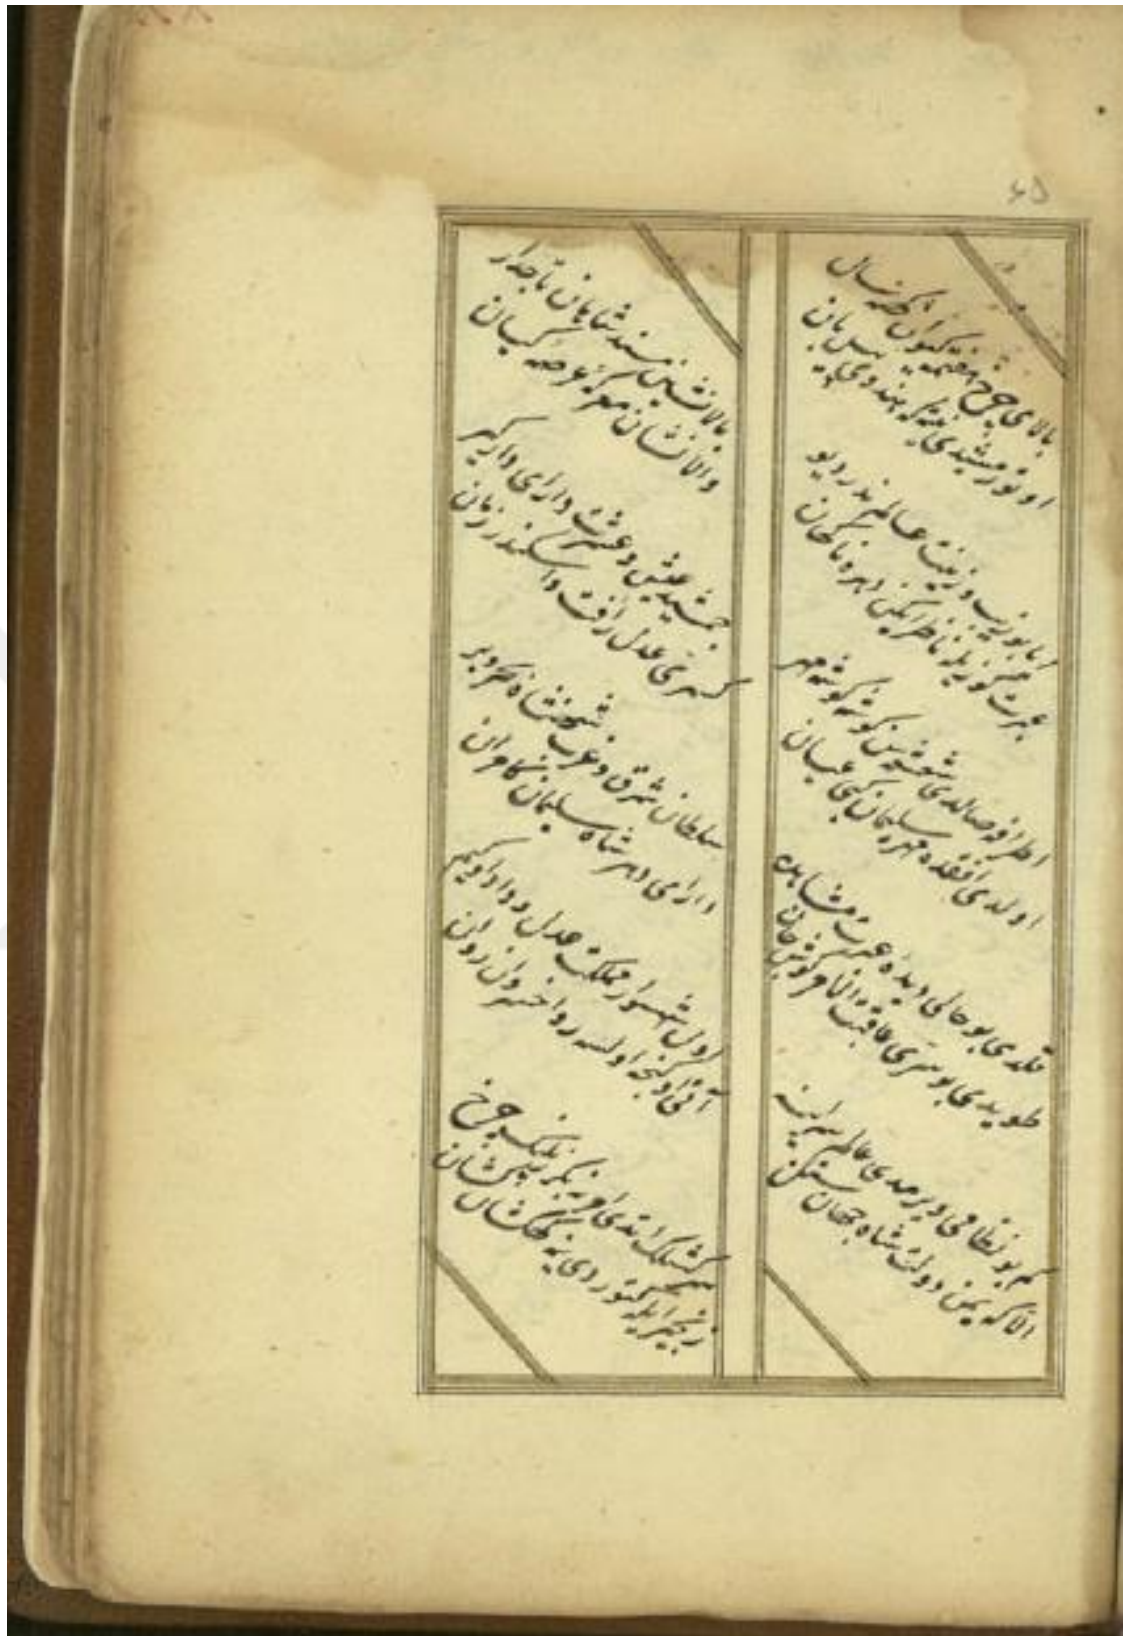 بالای چرخ هفتمه کیوان کهنه سال
اوتورمشیدی نیته که هندوی پیل بان
آیا بو زیب و زینت عالم ندر دیو
عبرت کوزیله ناظر ایکن دهره ناکهان
اطرافه صالدی شعشعه سین کوشه کوشه مهر
اولدی افقده مهر سلیمان کبی عیان
قلدی بو حالی دیده عبرت مشاهده
طویدی بو سری عاقبة الامر کوش جان
کم بو نظامی ویرمدی عالم سراینه
الا که یمن دولت شاه جهان ستان
بالانشین مسند شاهان تاجدار
والانشان معرکه عرصه کیان
جمشید عیش و عشرت و دارای دار و کیر
کسرای عدل و رأفت و اسکندر زمان
سلطان شرق و غرب شهنشاه بحر و بر
دارای دهر شاه سلیمان کامران
اول شهسوار مملکت عدل و داد کیم
آتی اوکنجه اولسه روا خسروان روان
سرکشلک اتدی امرینه بکزر پلنک چرخ
زنجیر ایله کتوردی ینه کهکشان کشان